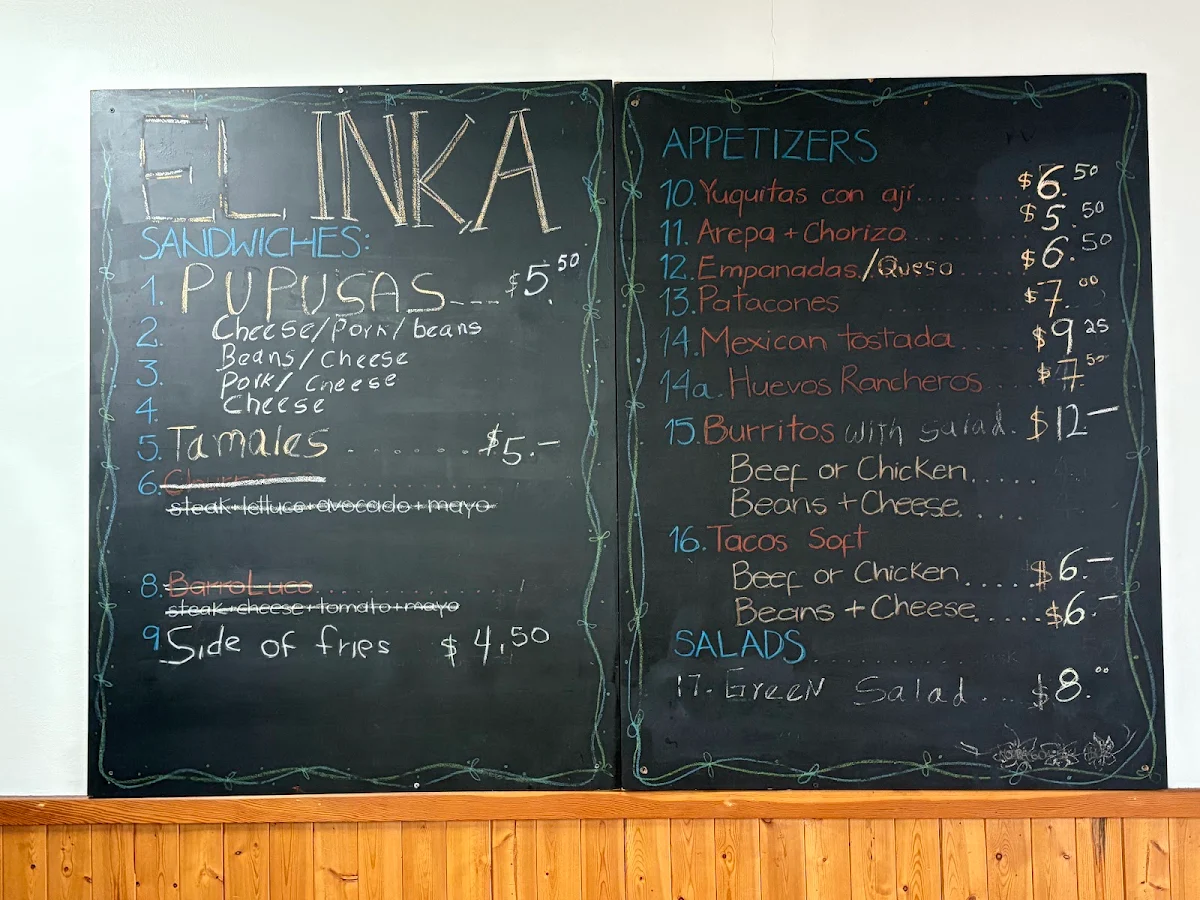 EL INKA
SANDWICHES:
1. PUPUSAS---$5.50
2. Cheese/Pork/beans
3. Beans/Cheese
4. Pork/Cheese
Cheese
5. Tamales . . . . . . $5.—
6. Churrasco
steak+lettuce+avocado+mayo
8. BarroLuco
steak+cheese+tomato+mayo
9. Side of fries $4,50
APPETIZERS
10. Yuquitas con ají....... $6.50
11. Arepa + Chorizo....... $5.50
12. Empanadas./Queso .... $6.50
13. Patacones $7.00
14. Mexican tostada..... $9.25
14a. Huevos Rancheros... $7.50
15. Burritos with salad. $12—
Beef or Chicken.....
Beans + Cheese.....
16. Tacos Soft
Beef or Chicken..... $6.—
Beans + Cheese..... $6.—
SALADS
17. Green Salad... $8.00